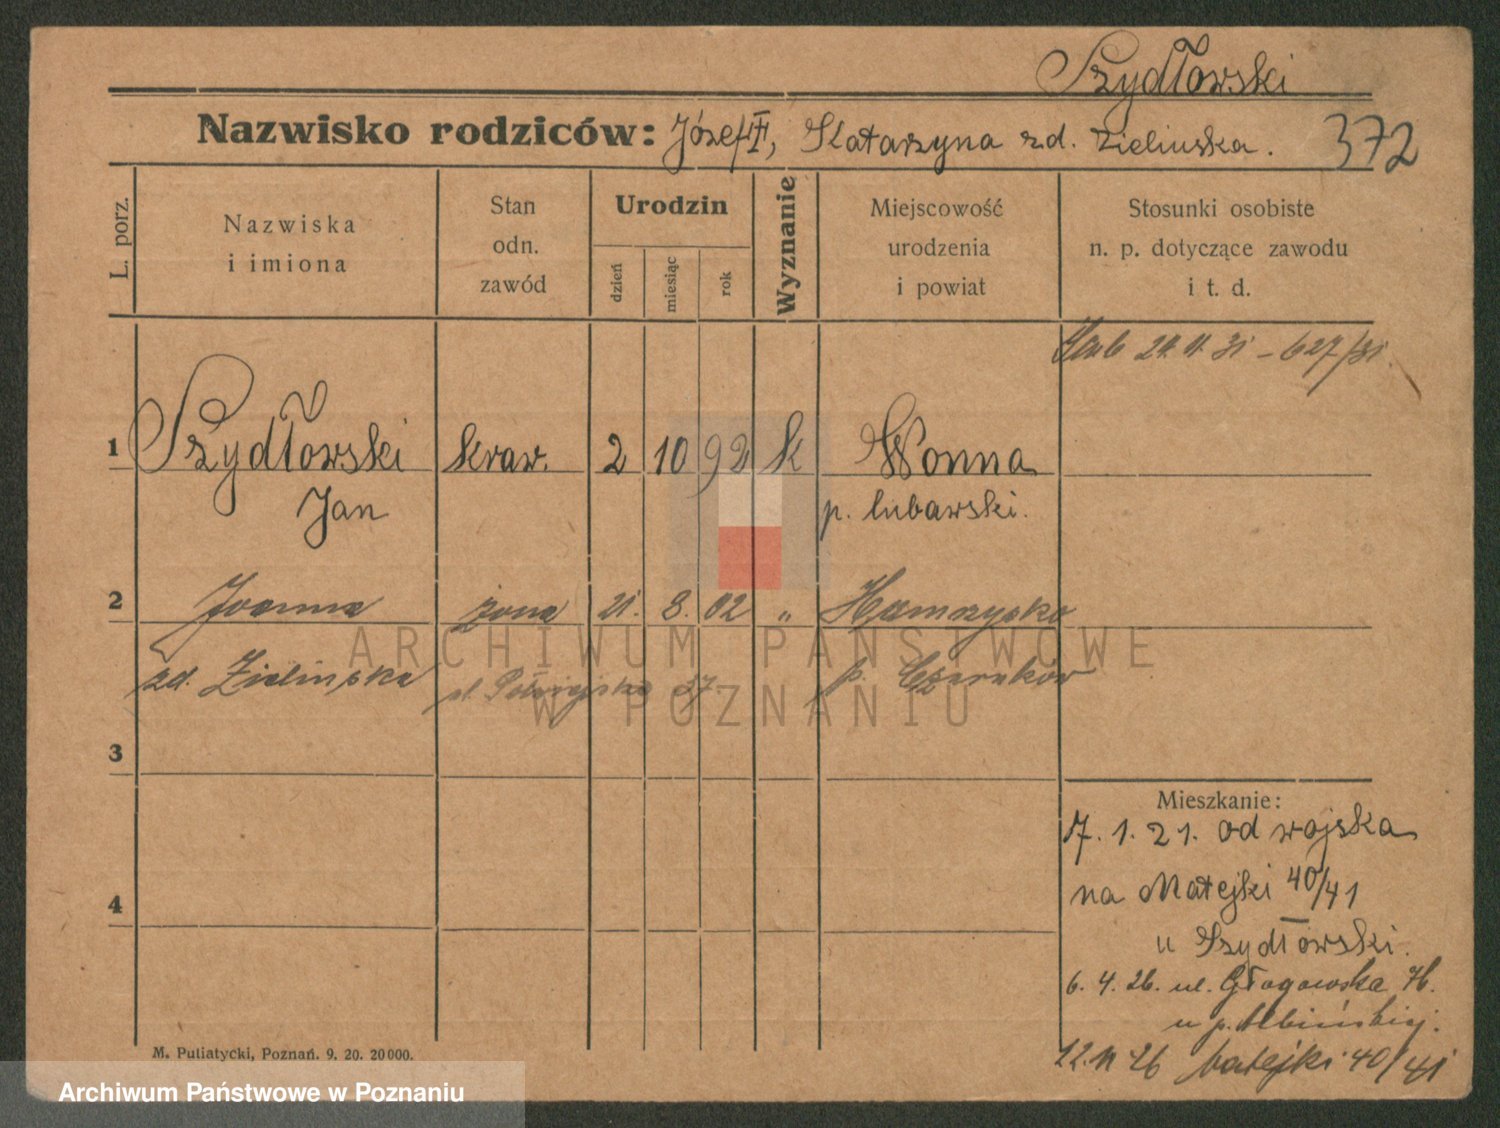 Szydłowski
Nazwisko rodziców: Józef †, Katarzyna zd. Zielinska. 372
L. porz.
Nazwiska
i imiona
Stan
odn.
zawód
Urodzin
dzień
miesiąc
rok
Wyznanie
Miejscowość
urodzenia
i powiat
Stosunki osobiste
n. p. dotyczące zawodu
i t. d.
31 - 627/31.
1 Szydłowski kraw. 2 10 92 k Wonna
Jan p. lubawski.
2 Joanna żona 21. 8. 02 „ Hamrysko
zd. Zielinska ul. 37. p. Czarnków
ARCHIWUM PAŃSTWOWE
W POZNANIU
3
4
Mieszkanie:
7. 1. 21. od wojska
na Matejki 40/41
u Szydłowski.
6. 4. 26. ul. Głogowska 76.
u p.
12. 11 26 Matejki 40/41
M. Putiatycki, Poznań. 9. 20. 20000.
Archiwum Państwowe w Poznaniu